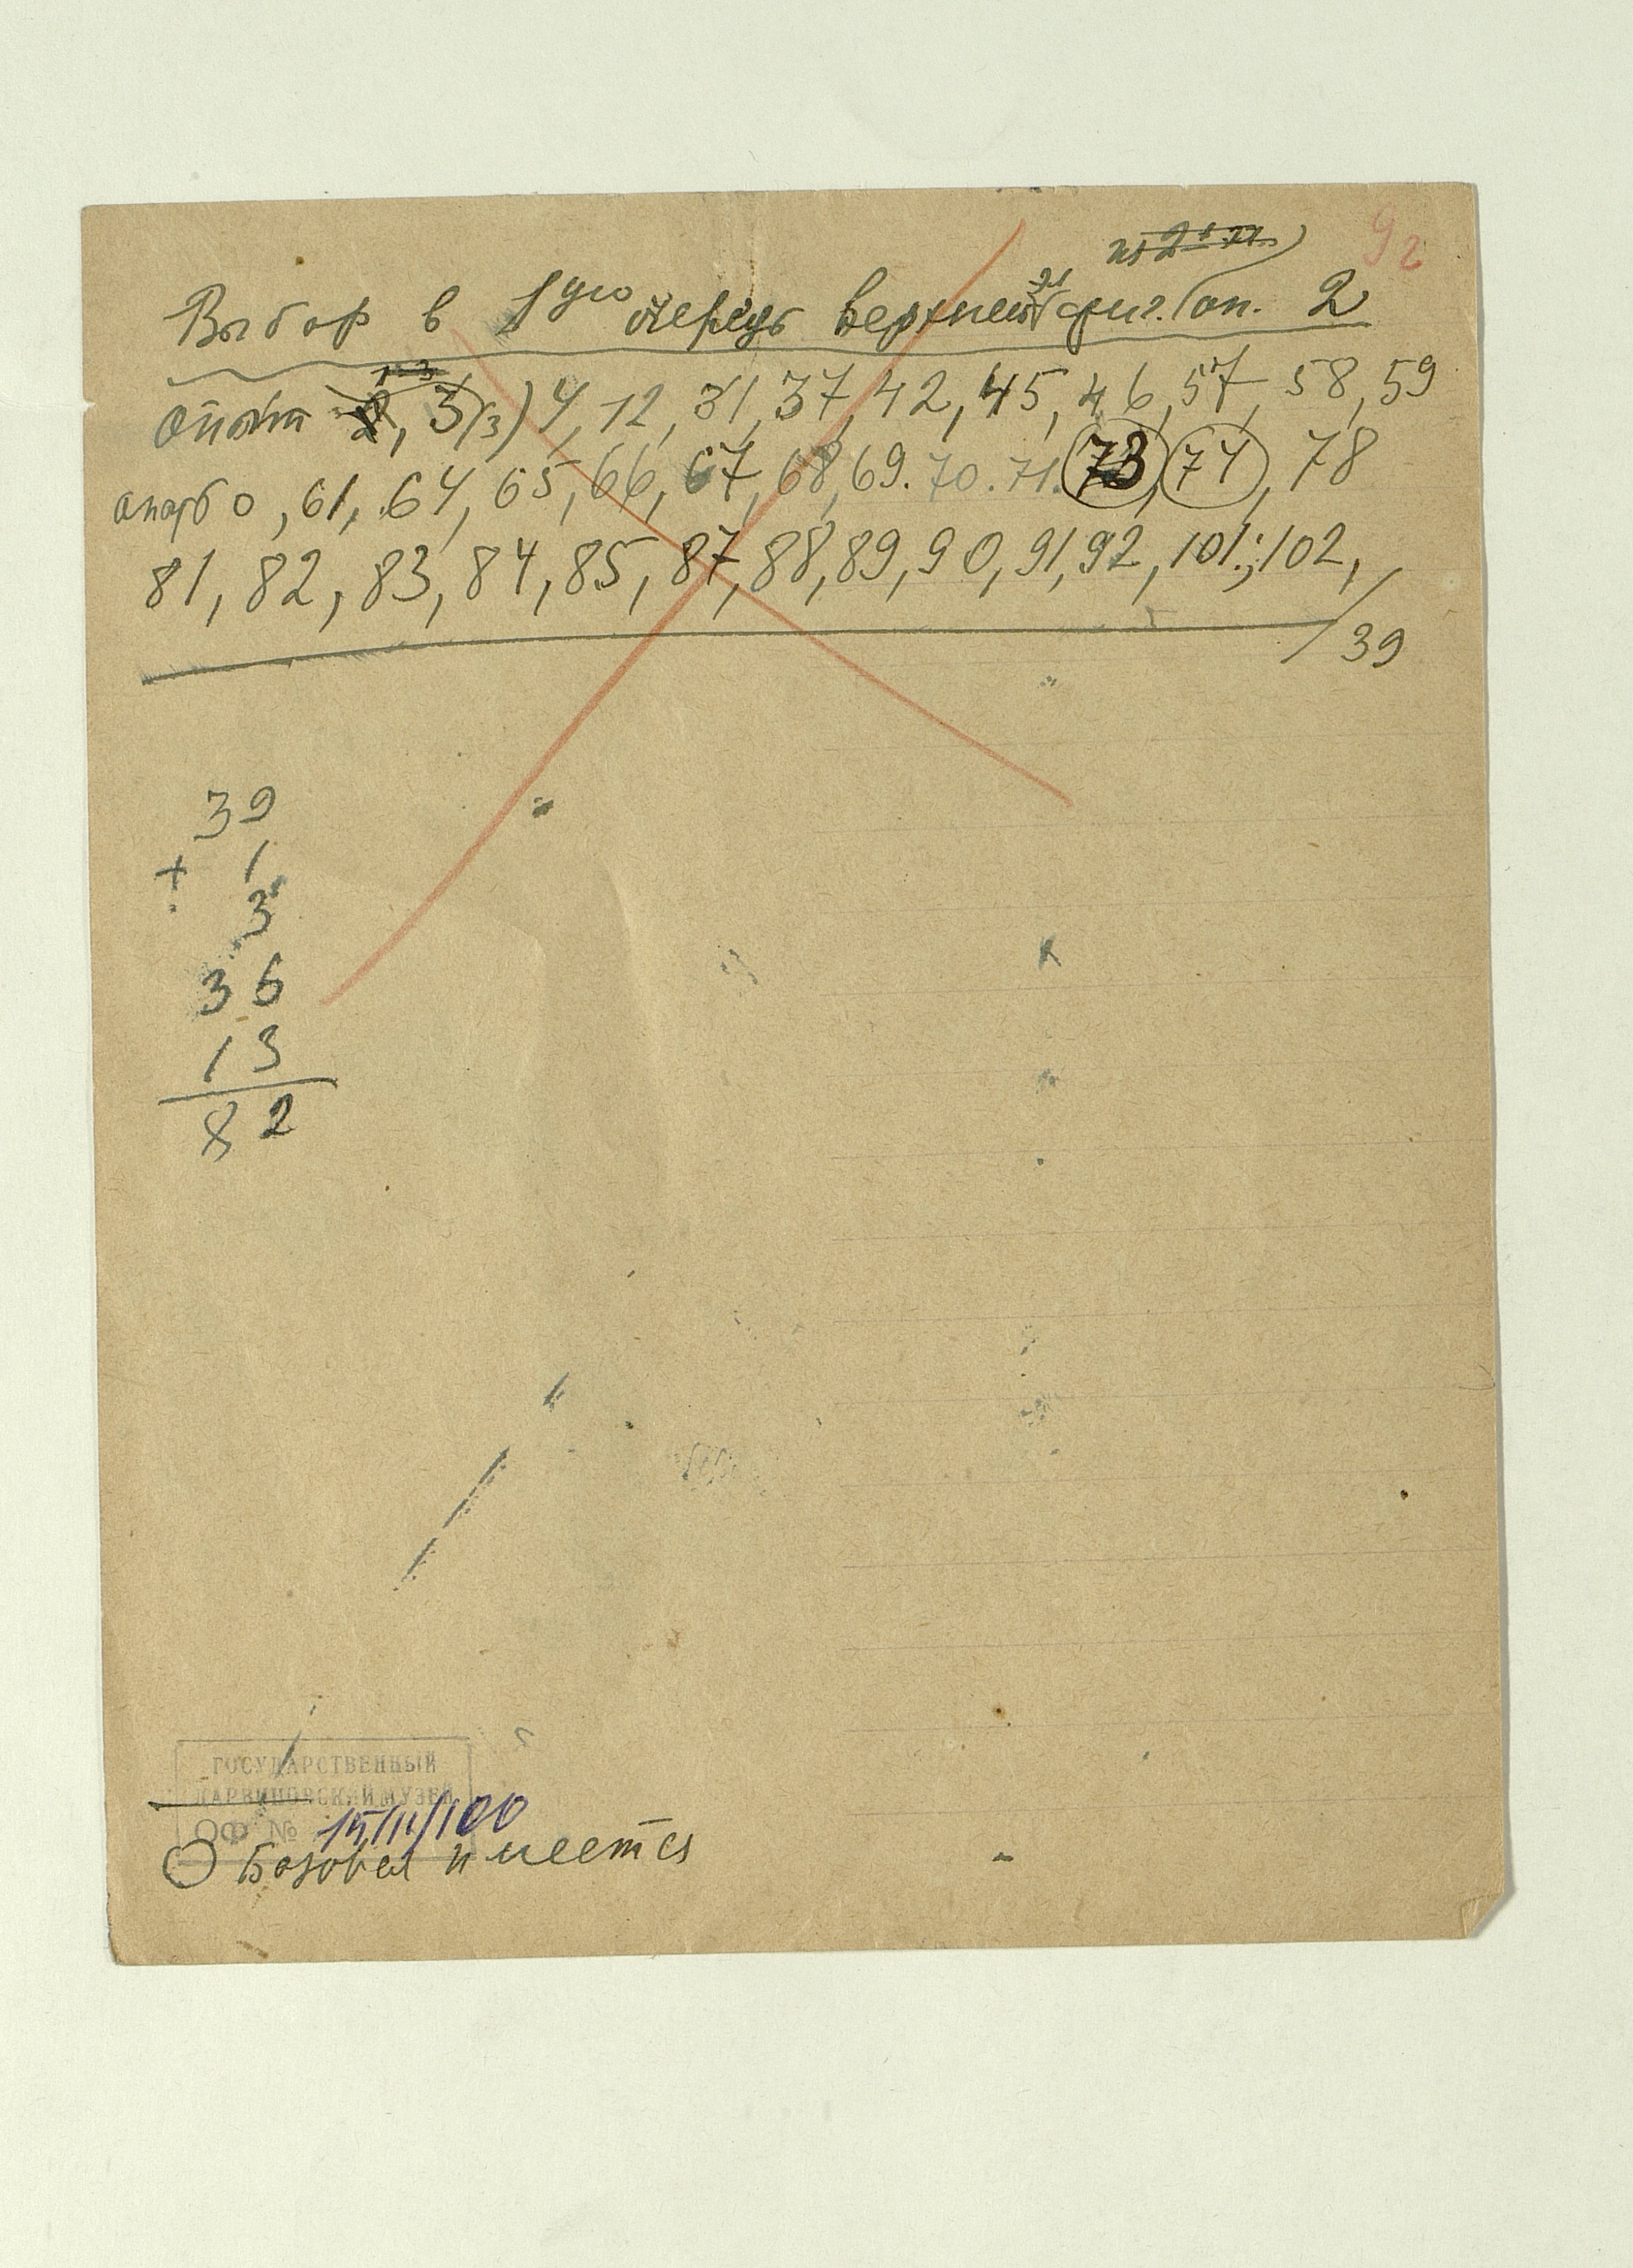 92
Выбор в 1ую очередь верхней фиг. (оп. 2
опыты 3(3) 4, 12, 31, 37, 42, 45, 46, 57, 58, 59
0, 61, 64, 65, 66, 67, 68, 69. 70. 71. 73, 74, 78
81, 82, 83, 84, 85, 87, 88, 89, 90, 91, 92, 101; 102,
39
39
+ 1
3
36
13
82
ГОСУДАРСТВЕННЫЙ
ДАРВИНОВСКИЙ МУЗЕЙ
ОФ № 15111/100
О базовая имеется